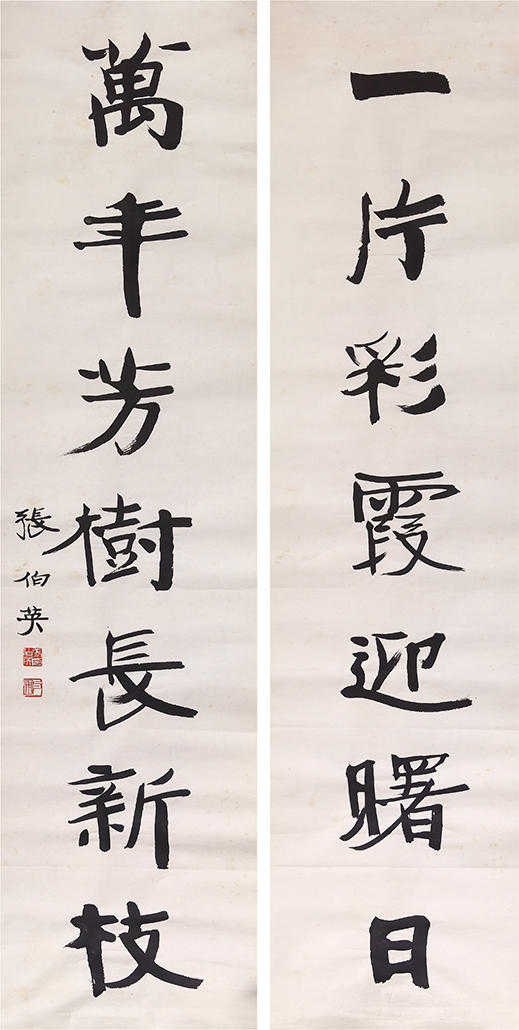 一片彩霞迎曙日
萬年芳樹長新枝
張伯英